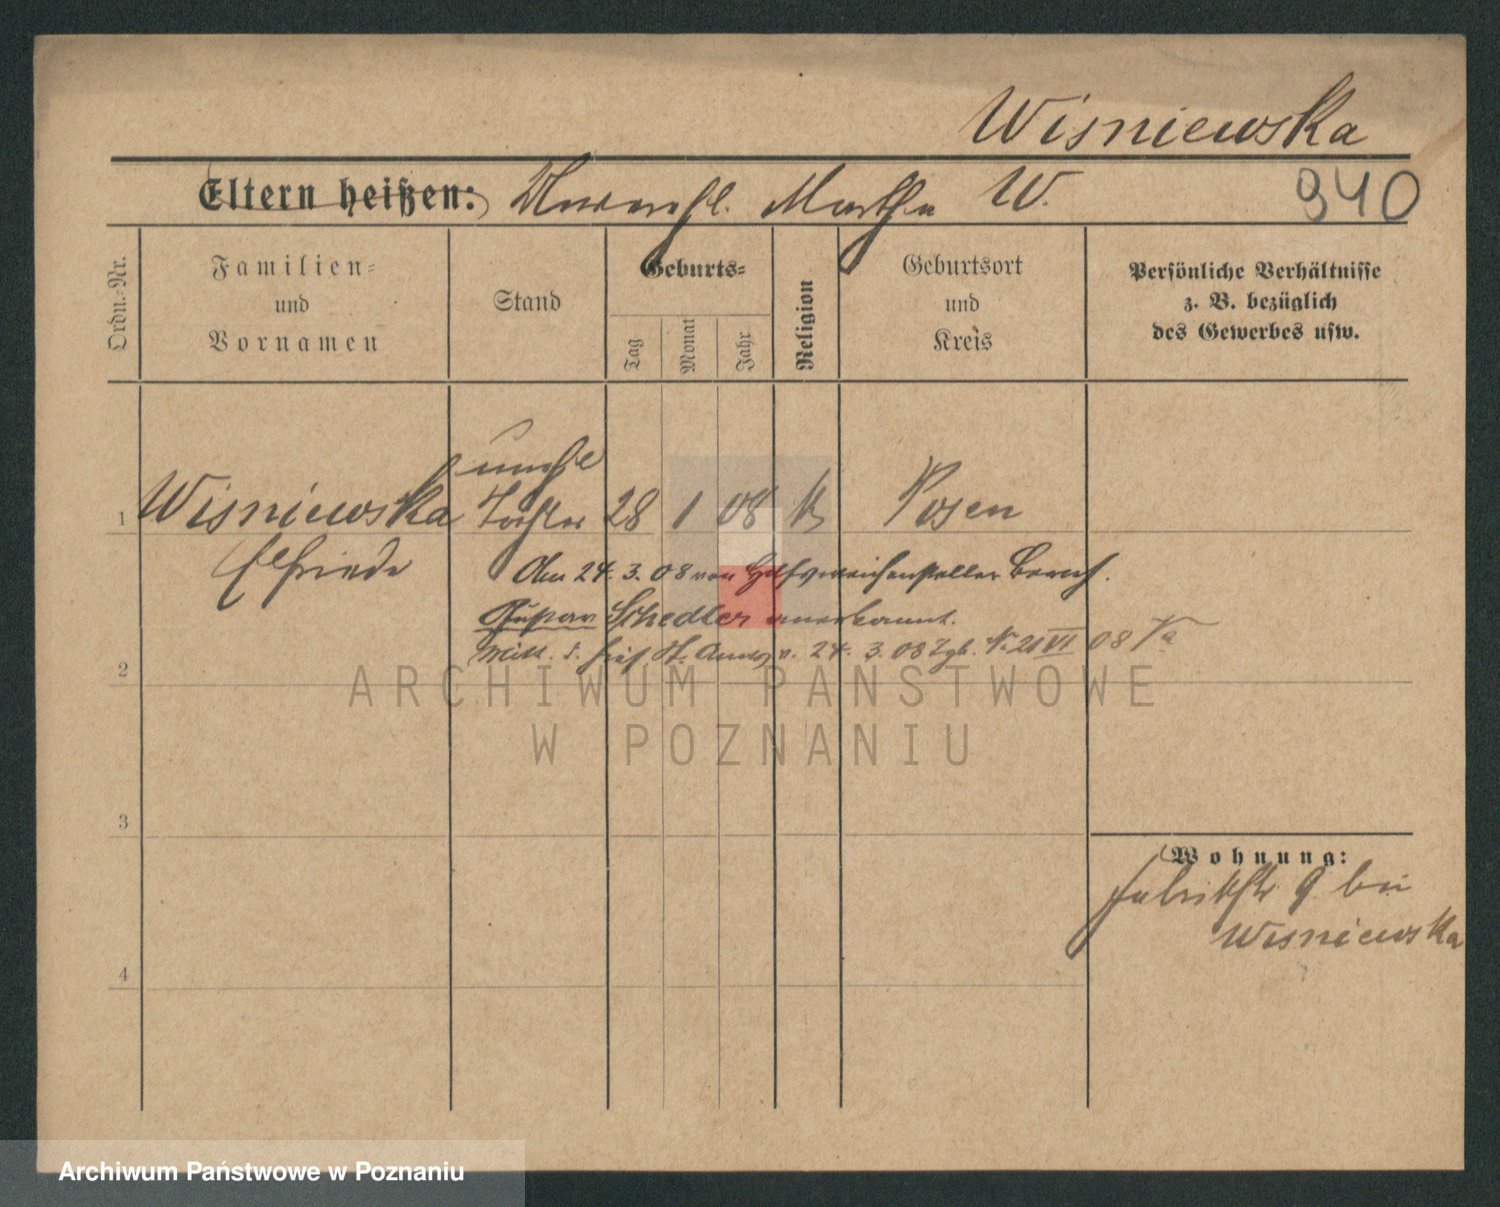 Wisniewska
Eltern heißen: Unverehl. Martha W. 940
Ordn.-Nr.
Familien-
und
Vornamen
Stand
Geburts-
Tag
Monat
Jahr
Religion
Geburtsort
und
Kreis
Persönliche Verhältnisse
z. B. bezüglich
des Gewerbes usw.
unehl
1 Wisniewska Tochter 28 1 08 k Posen
Elfriede
Am 24.3.08 von Hilfsweichensteller
Gustav Schedler anerkannt.
Mitt. d. St. Amtes v. 24. 3. 08 Tgb. No 21 VI 08
2
ARCHIWUM PAŃSTWOWE
W POZNANIU
3
Wohnung:
Fabrikstr. 9 bei
Wisniewska
4
Archiwum Państwowe w Poznaniu